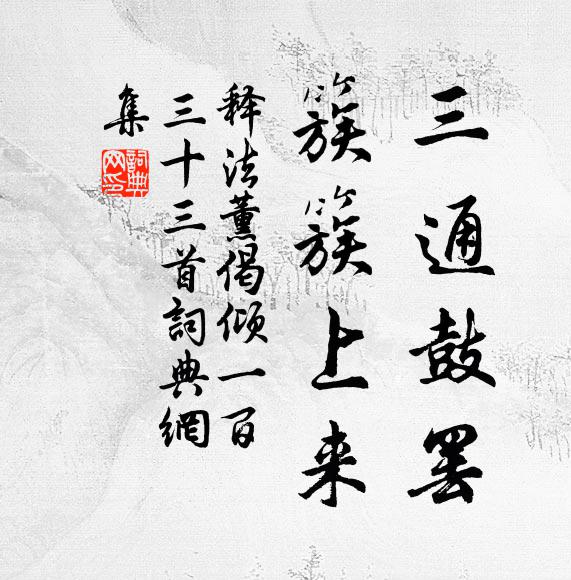 三通鼓罢
簇簇上来
释法薰偈倾一百
三十三首詞典網
集
詞典網印